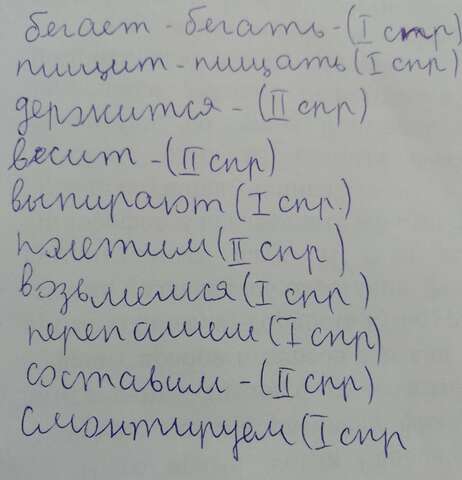 бегает - бегать - (I спр)
пищит - пищать (I спр)
держится - (II спр)
весит - (II спр)
выпирают (I спр.)
полетим (II спр)
возьмемся (I спр)
перепашем (I спр)
составим - (II спр)
смонтируем (I спр